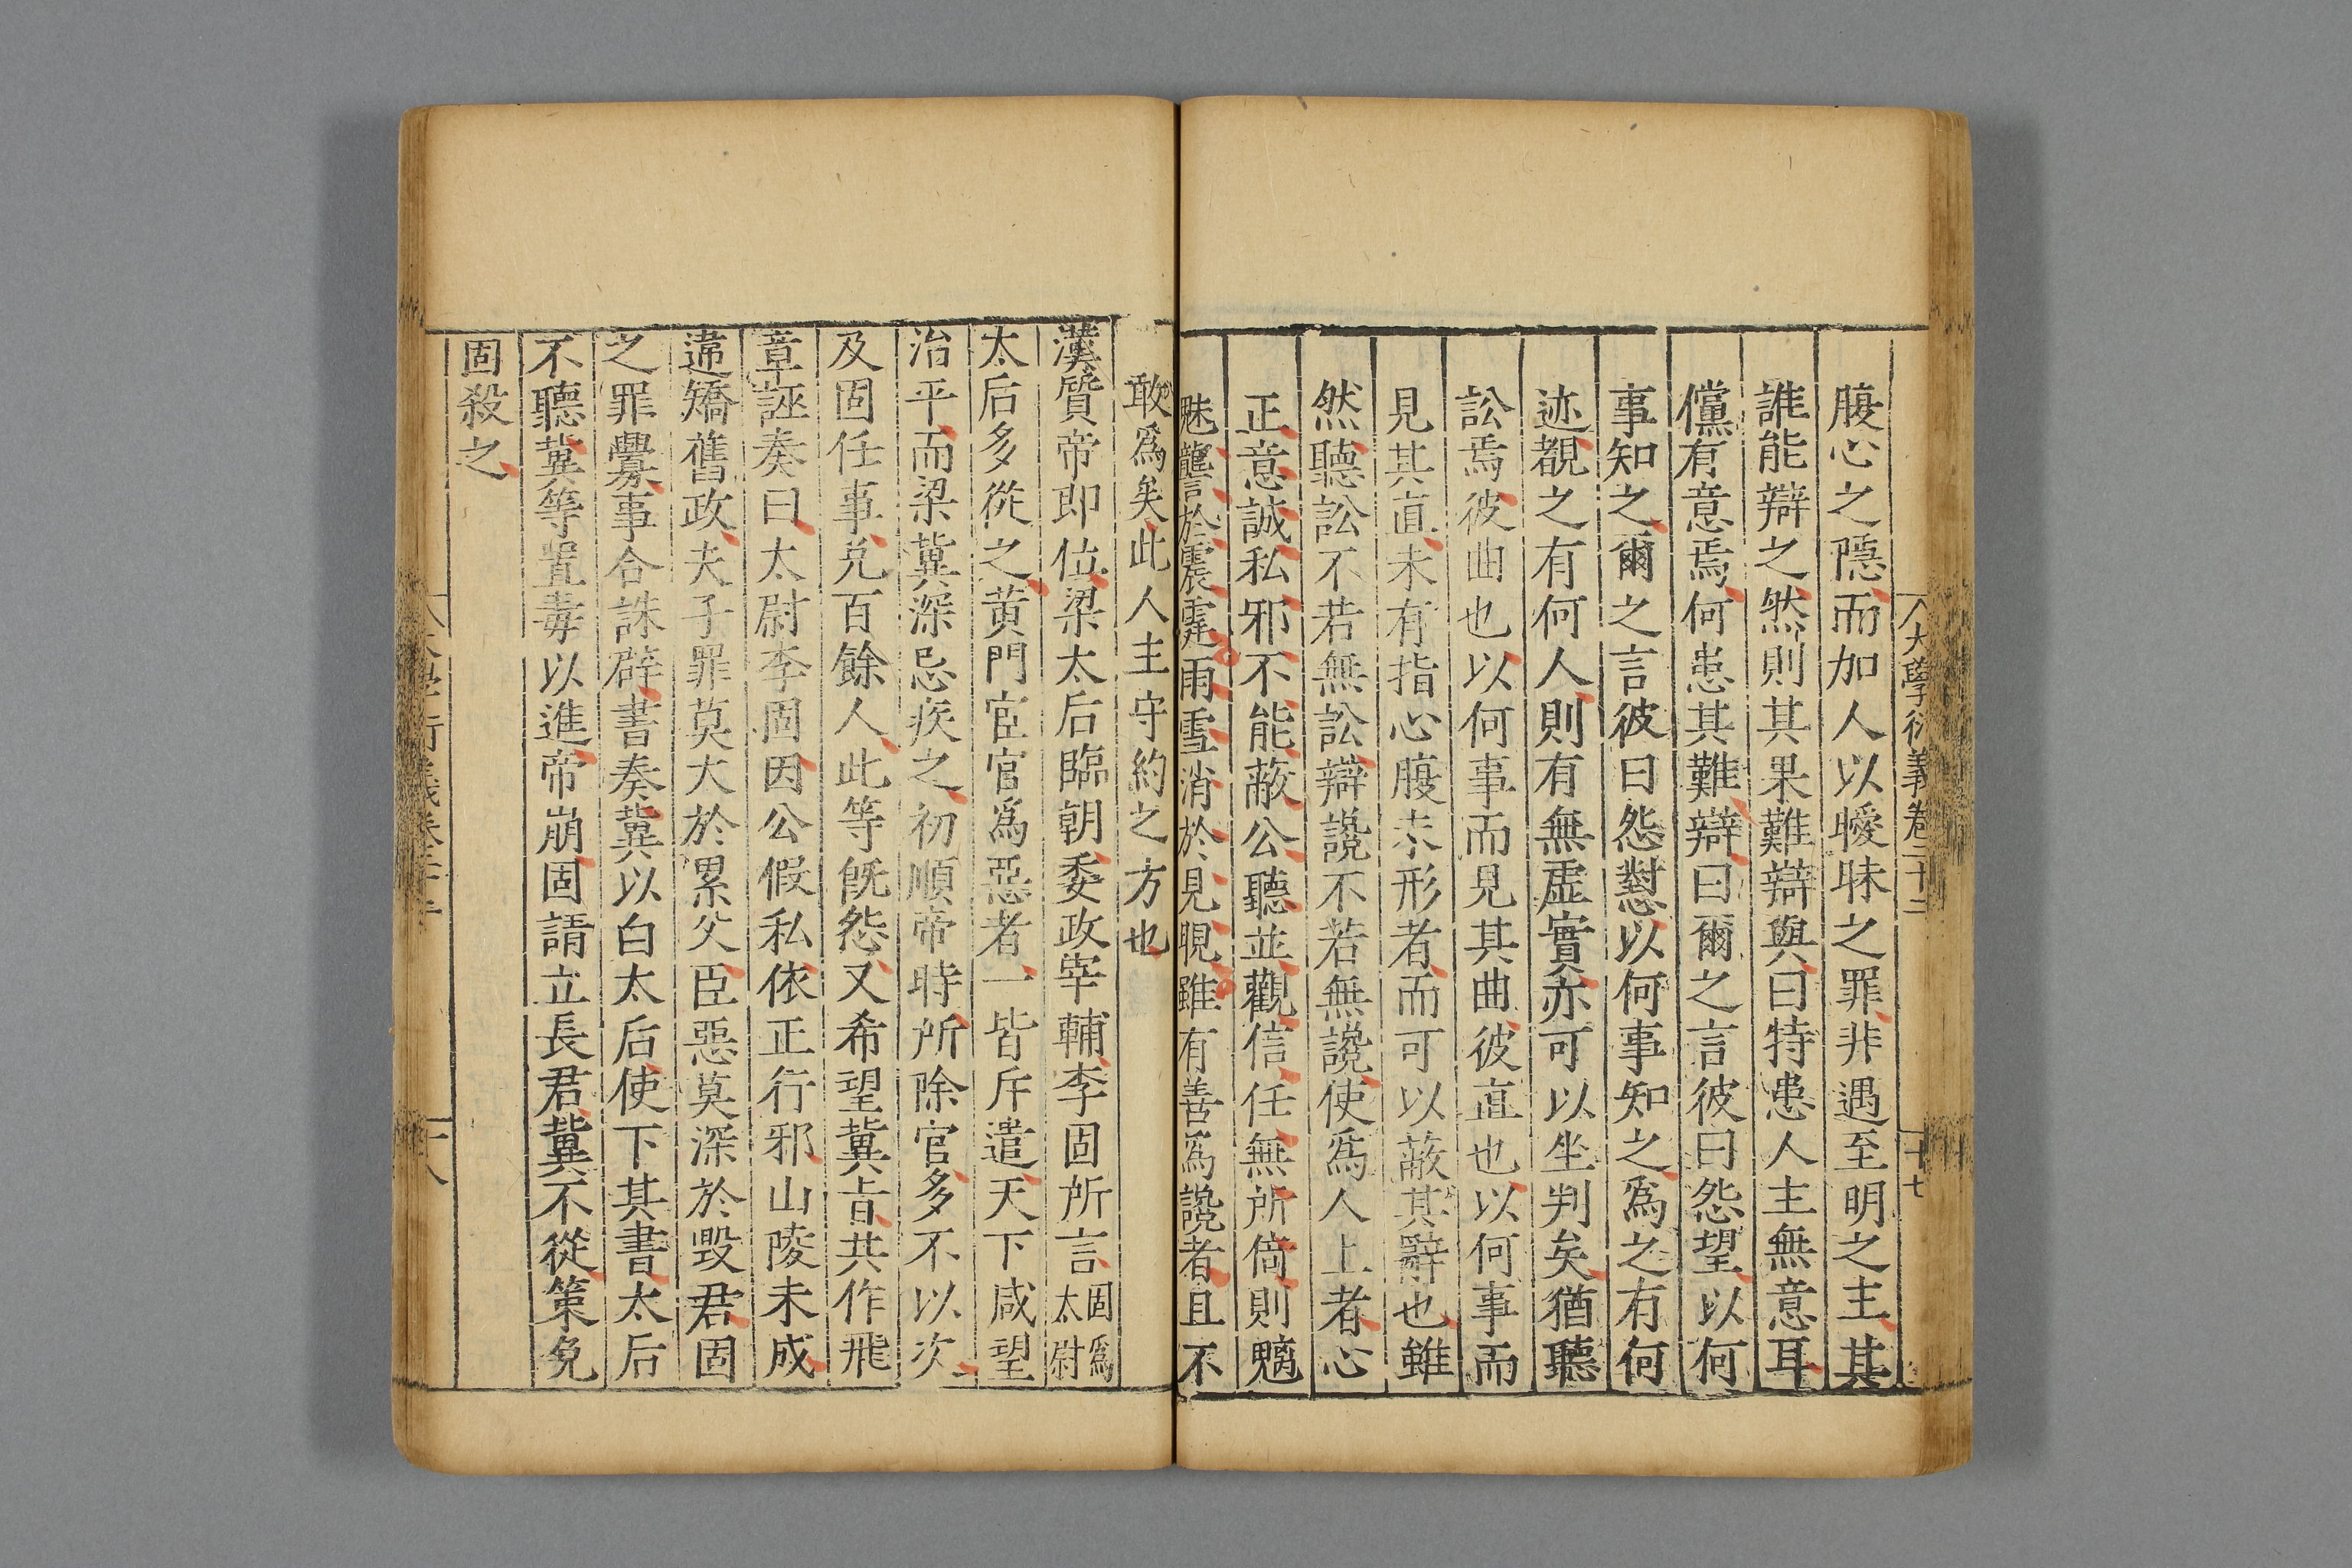 大學衍義卷二十二
十七
腹心之隱而加人以曖昧之罪非遇至明之主其
誰能辯之然則其果難辯與曰特患人主無意耳
儻有意焉何患其難辯曰爾之言彼曰怨望以何
事知之爾之言彼曰怨懟以何事知之爲之有何
迹覩之有何人則有無虛實亦可以坐判矣猶聽
訟焉彼曲也以何事而見其曲彼直也以何事而
見其直未有指心腹未形者而可以蔽其辭也雖
然聽訟不若無訟辯讒不若無讒使爲人上者心
正意誠私邪不能蔽公聽並觀信任無所倚則魑
魅讋於震霆雨雪消於見晛雖有善爲讒者且不
敢爲矣此人主守約之方也
漢質帝即位梁太后臨朝委政宰輔李固所言固爲太尉
太后多從之黃門宦官爲惡者一皆斥遣天下咸望
治平而梁冀深忌疾之初順帝時所除官多不以次
及固任事免百餘人此等旣怨又希望冀旨共作飛
章誣奏曰太尉李固因公假私依正行邪山陵未成
違矯舊政夫子罪莫大於累父臣惡莫深於毀君固
之罪釁事合誅辟書奏冀以白太后使下其書太后
不聽冀等置毒以進帝崩固請立長君冀不從策免
固殺之
十八